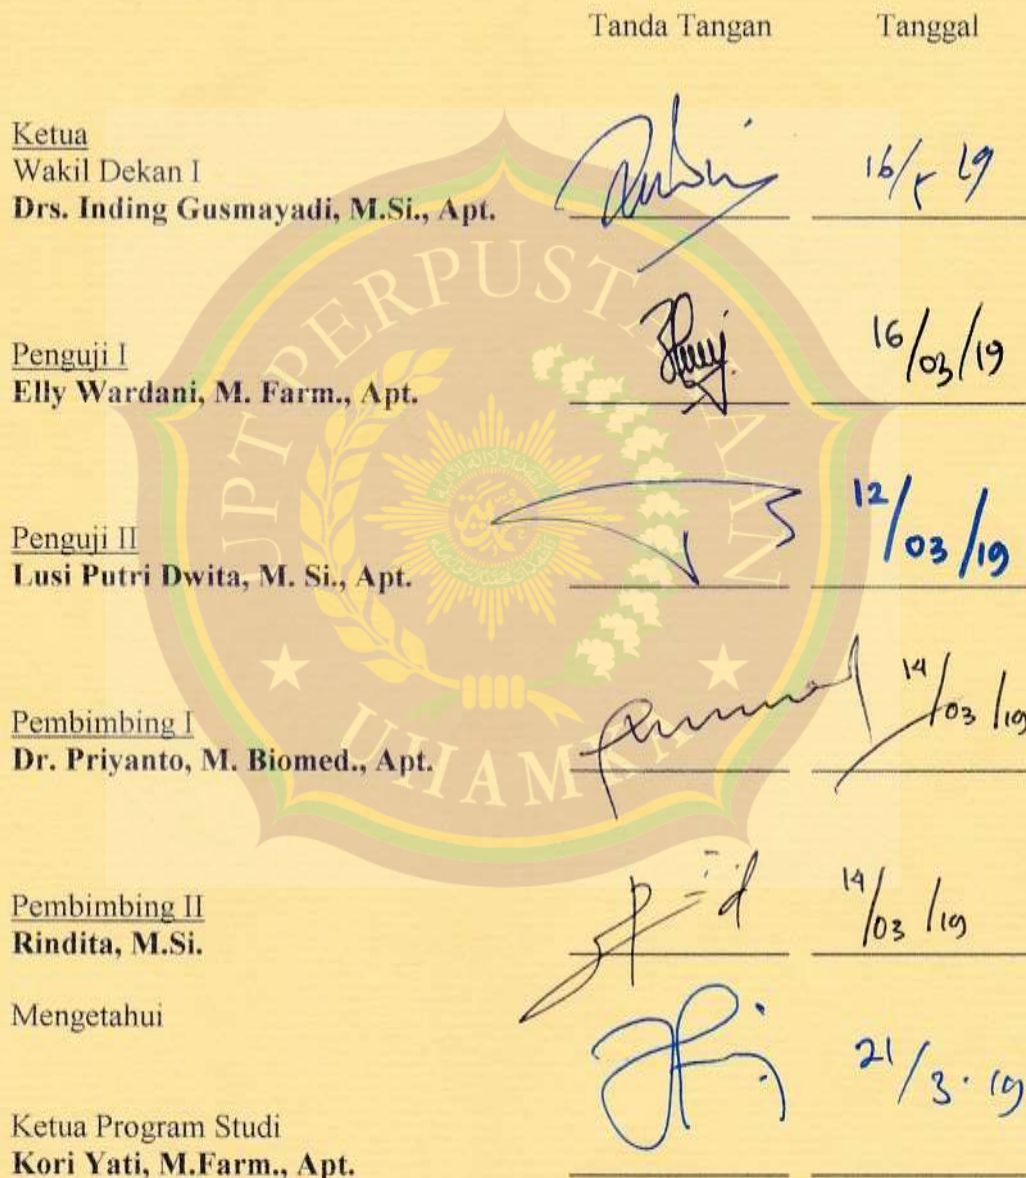 Tanda Tangan Tanggal
Ketua
Wakil Dekan I
Drs. Inding Gusmayadi, M.Si., Apt.
16/ 19
Penguji I
Elly Wardani, M. Farm., Apt.
16/03/19
Penguji II
Lusi Putri Dwita, M. Si., Apt.
12/03/19
Pembimbing I
Dr. Priyanto, M. Biomed., Apt.
14/03/19
Pembimbing II
Rindita, M.Si.
14/03/19
Mengetahui
21/3.19
Ketua Program Studi
Kori Yati, M.Farm., Apt.
UPT PERPUSTAKAAN
UHAMKA